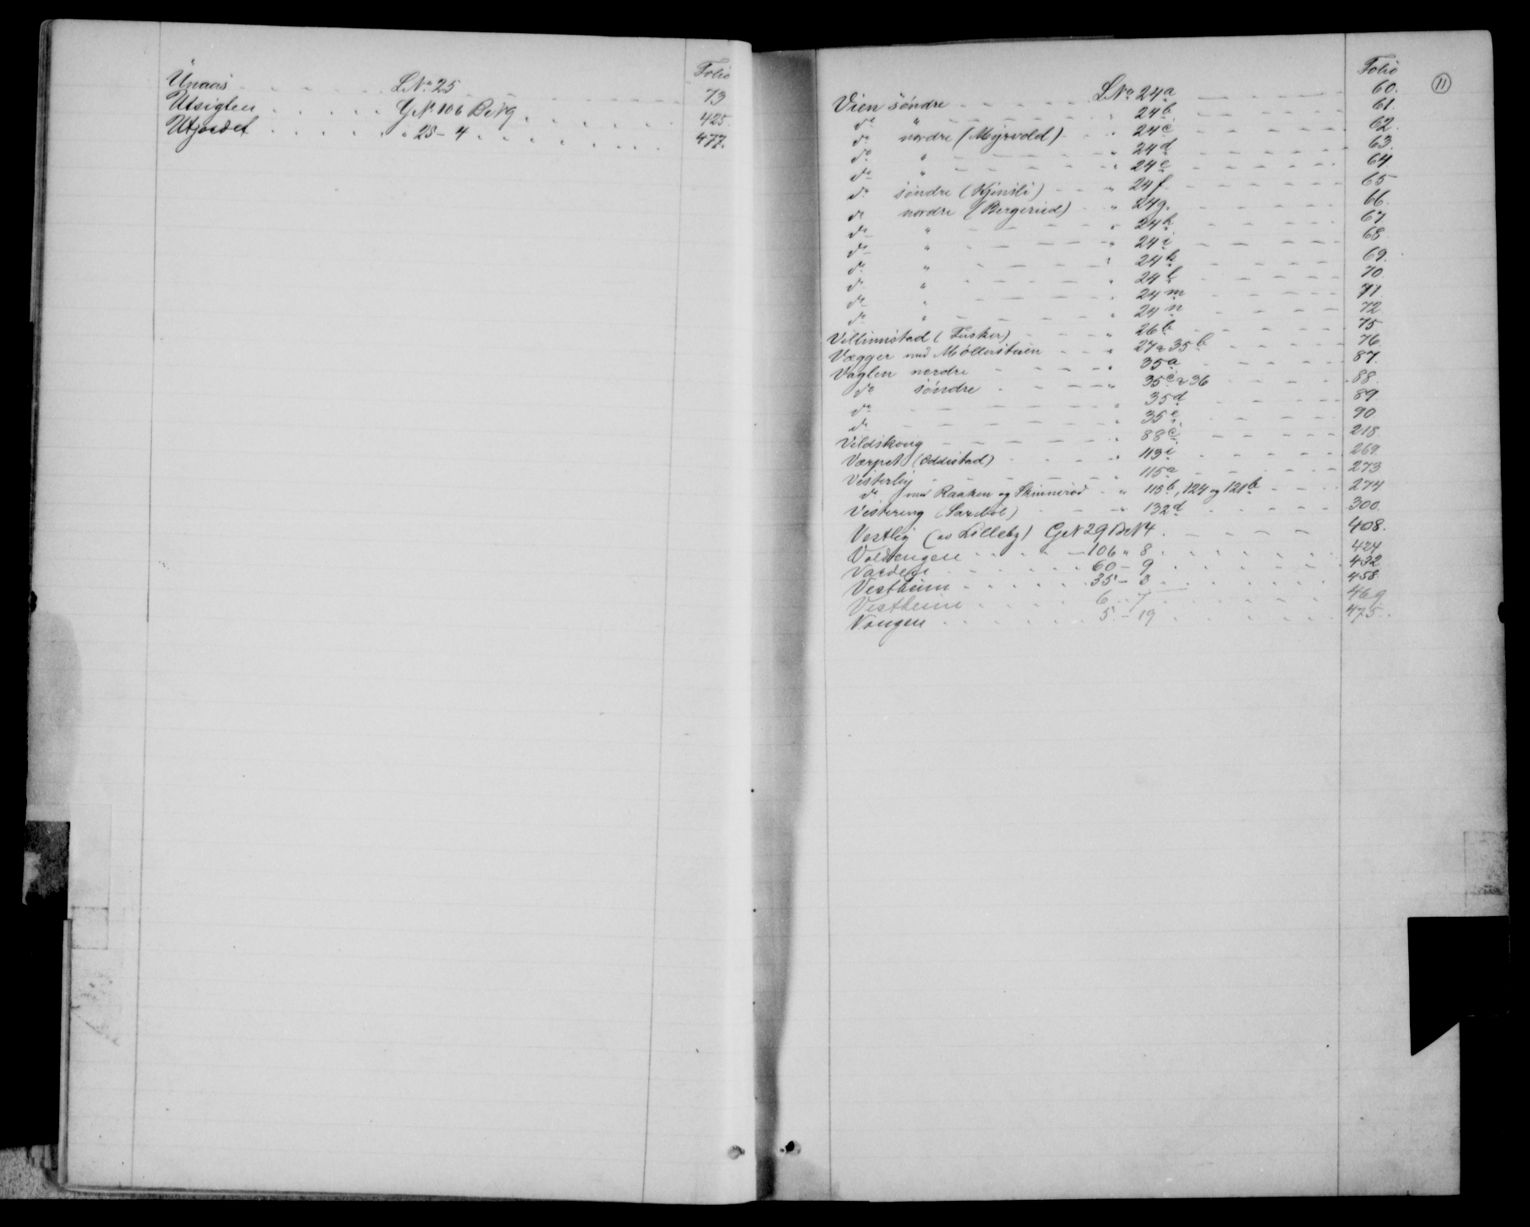 Folio
Unaas LNo 25 73
Utsigten GNo 106 BNo 9 425.
Utjordet " 25 - 4 477.
11
Folio
Vien søndre LNo 24a 60.
do " " 24b 61.
do nordre (Myrvold) " 24c 62.
do " " 24d 63.
do " " 24e 64
do søndre (Kjensli) " 24f 65
do nordre (Bergerud) " 24g. 66.
do " " 24h 67
do " " 24i 68
do " " 24k 69.
do " " 24l 70.
do " " 24m 71
do " " 24n 72
Villimstad ( Fusker) " 26b 75
Vægger med Møllerstuen " 27 & 35b 76
Vaglen nordre " 35a 87.
do søndre " 35c & 36 88.
do " 35d 89
do " 35e 90
Vildskoug " 88c 218
Værpet (Oddestad) " 113i 269
Vesterby " 115a 273
do med Raaken og Skinnerød " 115b, 124 og 121b 274
Vestereng (Sardal) " 132d 300.
Vestby (av Lilleby) GNo 29 BNo 4 408.
Voldengen 106 " 8 424
Vardeli 60 - 9 432
Vestheim 35 - 3 458
Vestheim 6 - 7 469
Vangen 5 - 19 475.